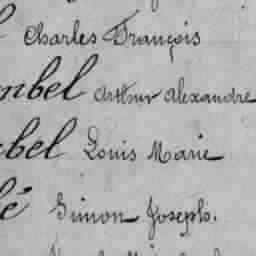 Charles François
mbel Arthur Alexandre
bel Louis Marie
lé Simon Joseph.